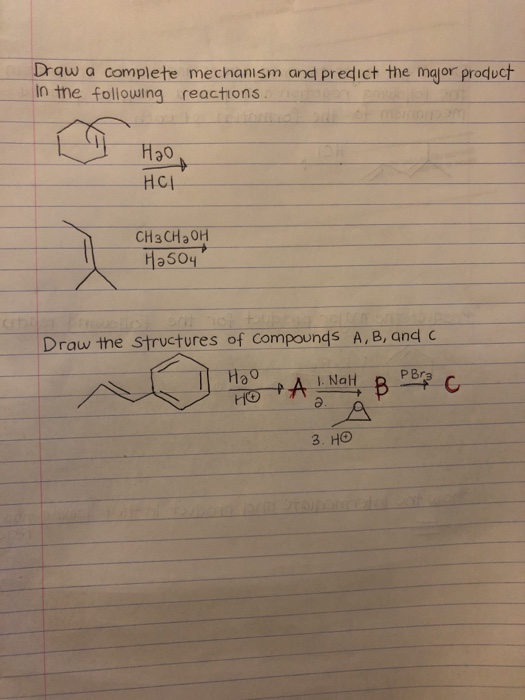 Draw a complete mechanism and predict the major product
in the following reactions.
H2O
HCl
CH3CH2OH
H2SO4
Draw the structures of compounds A, B, and C
H2O
H⊕
A
1. NaH
2.
O
3. H⊕
B
PBr3
C